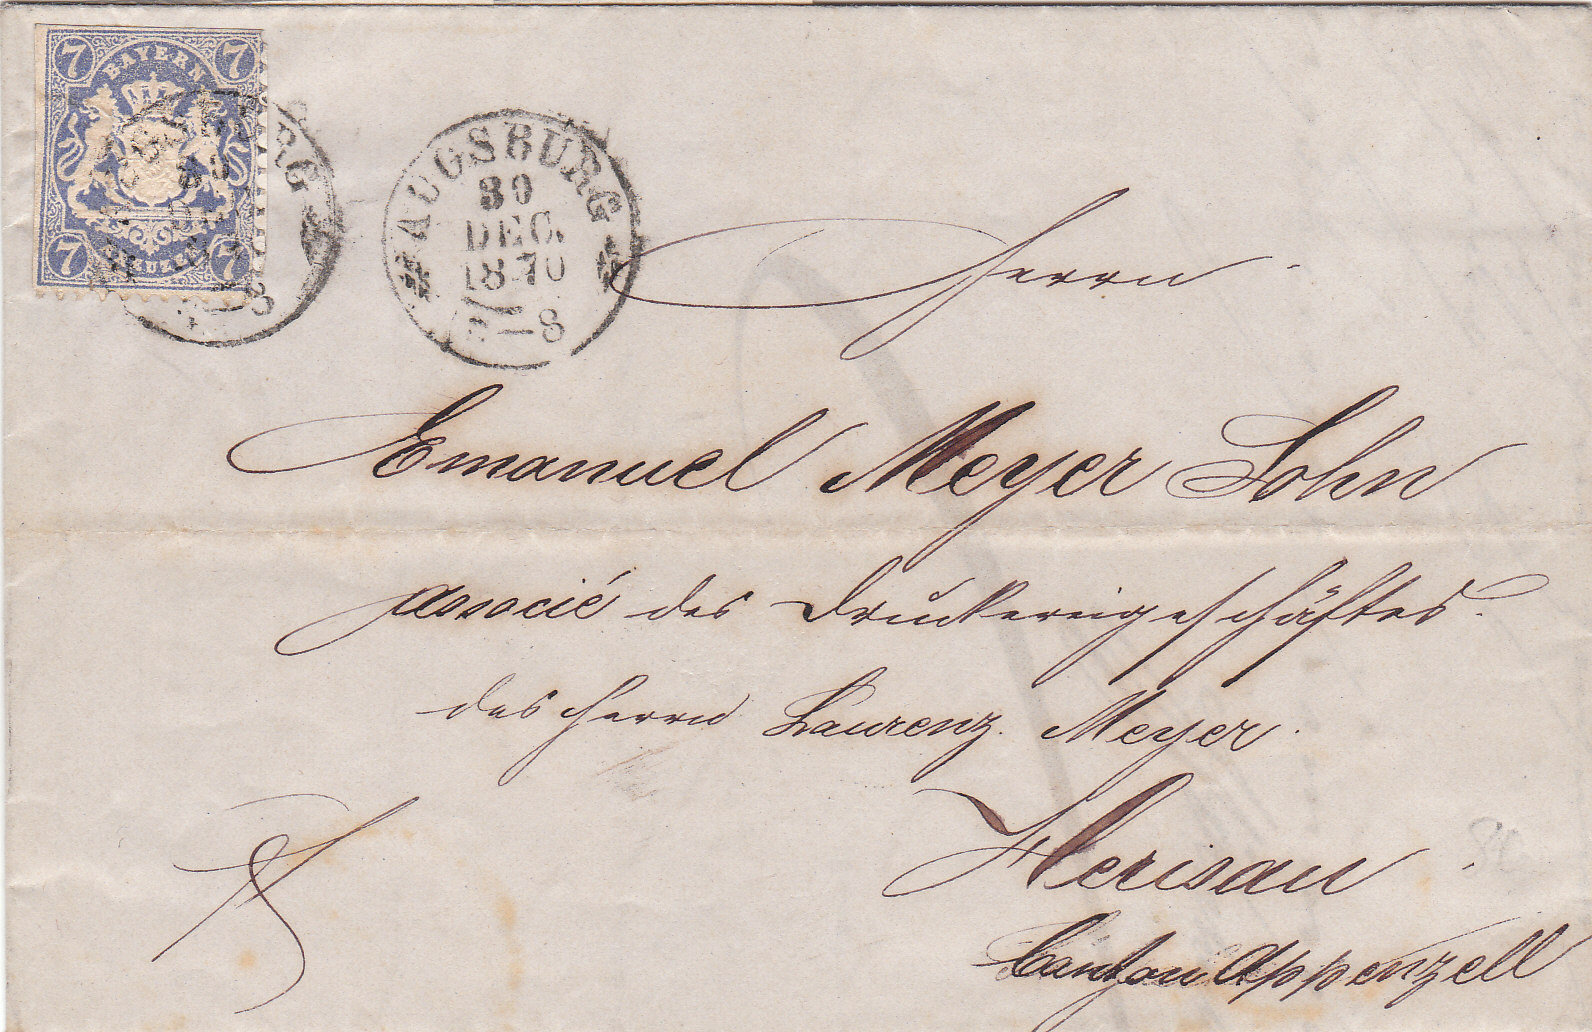 7 BAYERN 7
7 KREUZER 7
AUGSBURG
30
DEC.
1870
—8
Herrn
Emanuel Meyer Sohn
associé des Druckereigeschäftes
des Herrn Laurenz Meyer
Herisau
Canton Appenzell